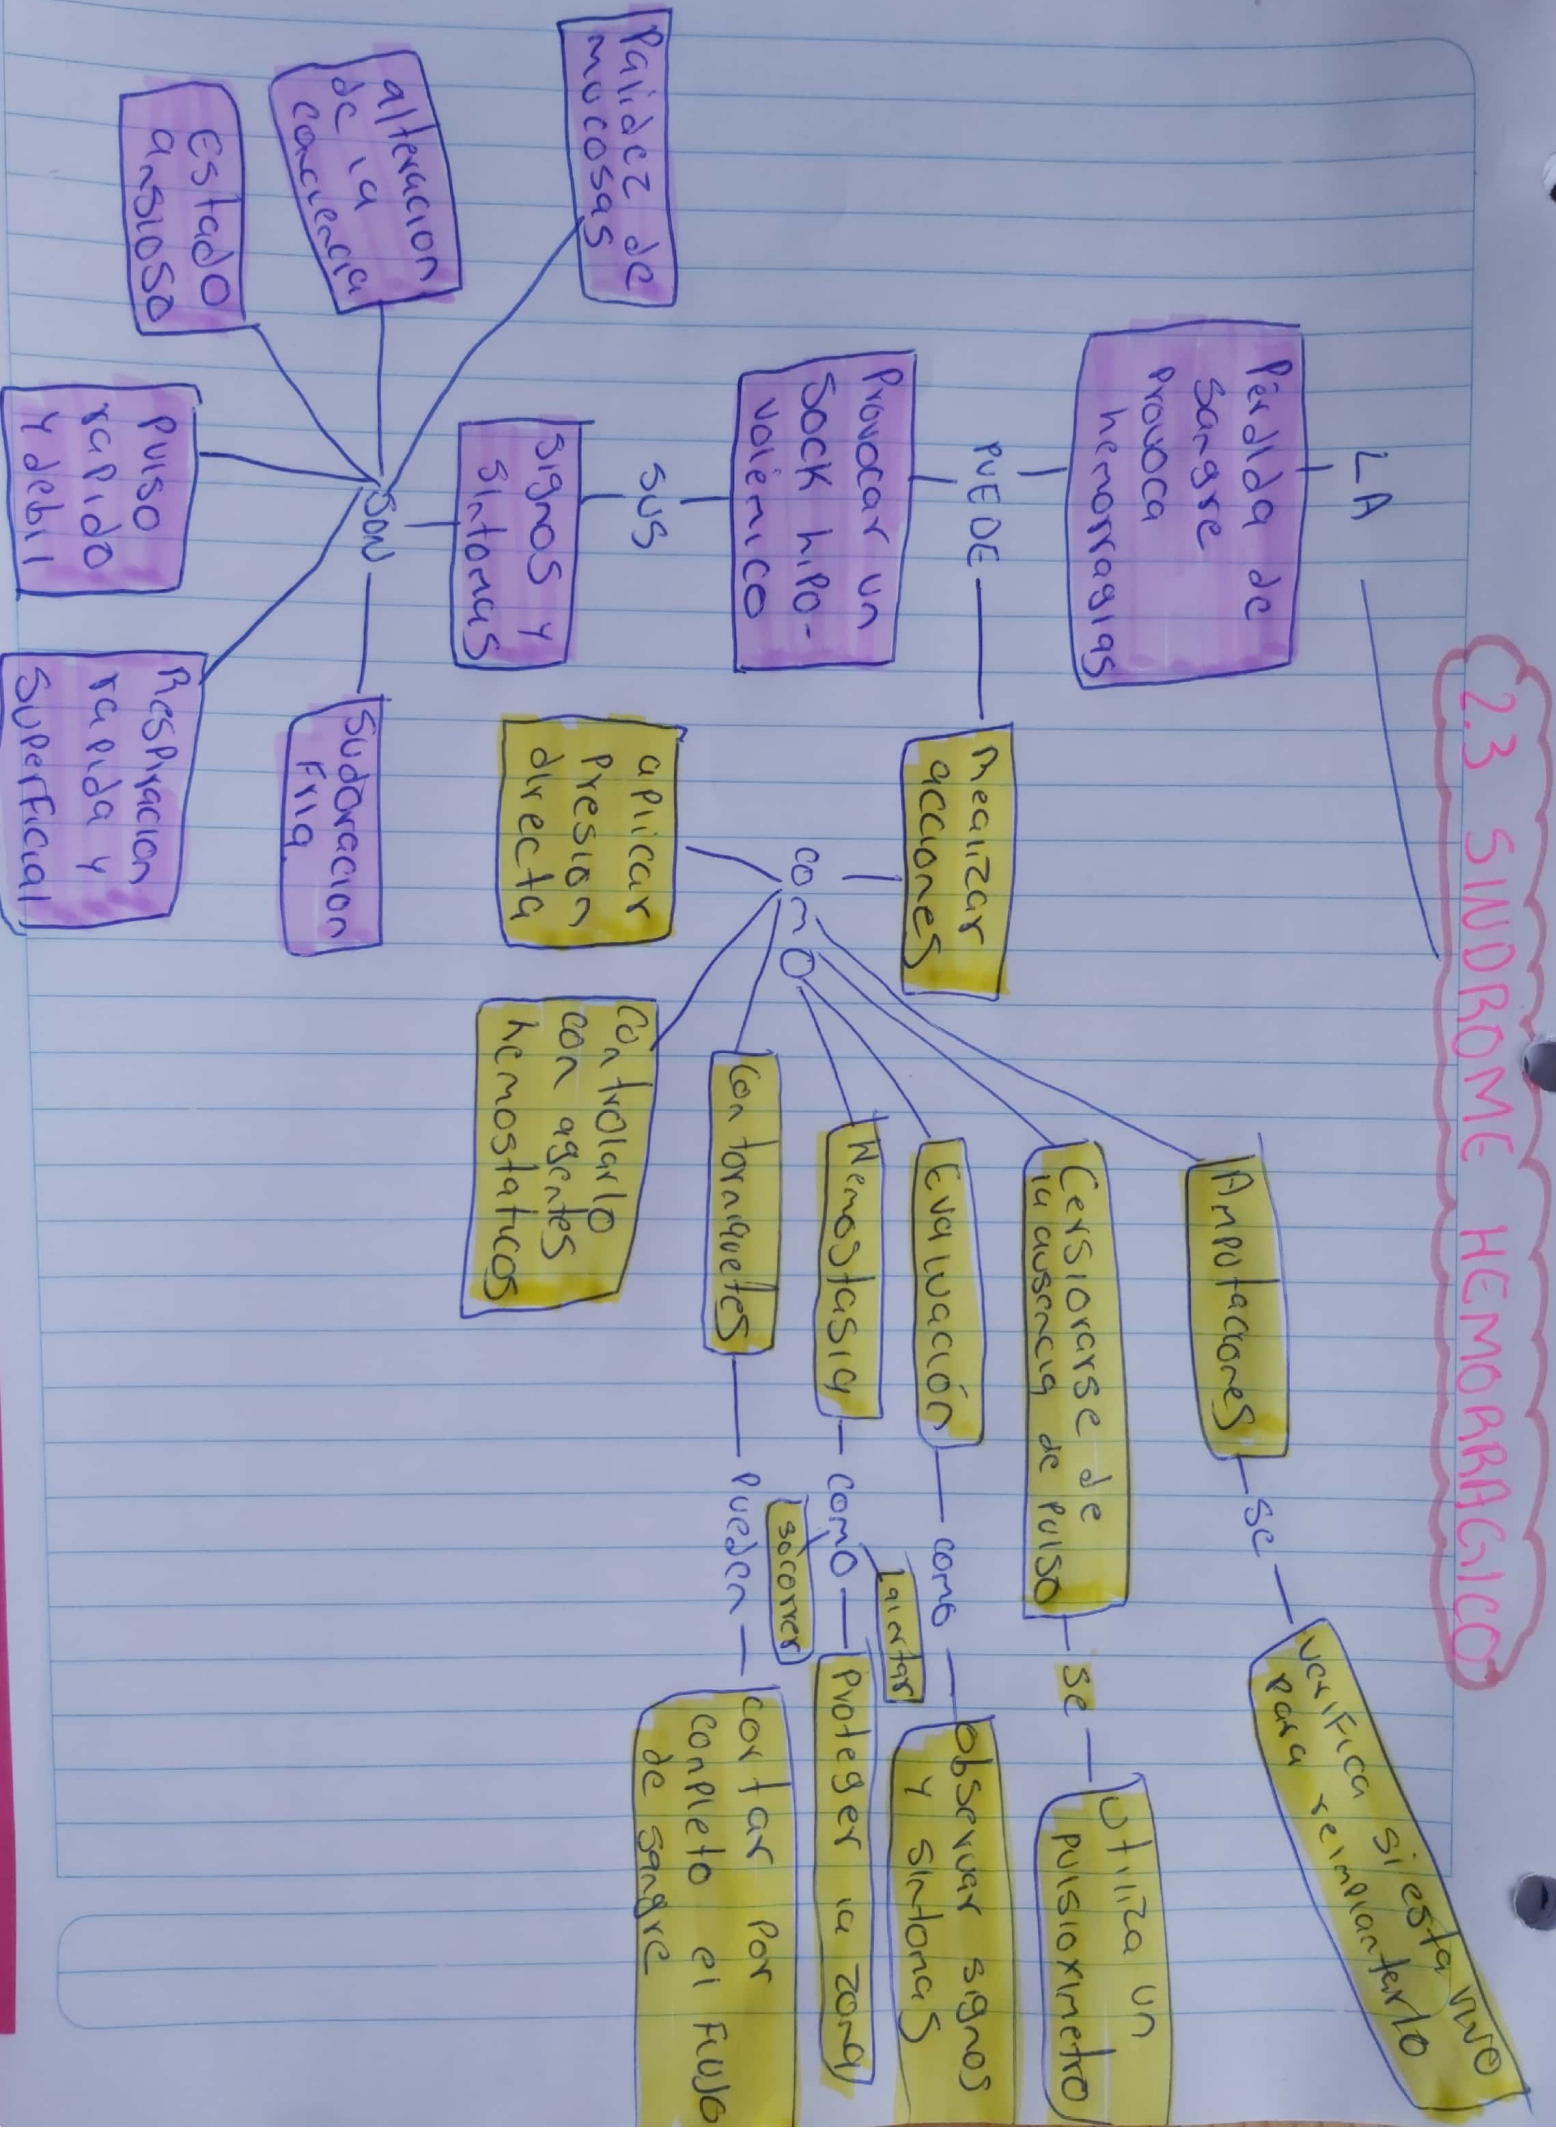 2.3 SINDROME HEMORRAGICO
LA
Pérdida de
sangre
provoca
hemorragias
PUEDE
Provocar un
Sock hipo-
volémico
SUS
Signos y
Sintomas
SON
Palidez de
mucosas
alteracion
de la
conciencia
Estado
ansioso
Pulso
rapido
y debil
Respiracion
rapida y
superficial
Sudoracion
Fria
Realizar
acciones
como
aplicar
Presion
directa
Controlarlo
con agentes
hemostaticos
Con torniquetes
Pueden
cortar por
completo el flujo
de sangre
Hemostasia
como
socorrer
Proteger la zona
alertar
Evaluación
como
observar signos
y sintomas
Cersiorarse de
la ausencia de pulso
se
Utiliza un
pulsioximetro
Amputaciones
se
verifica si esta vivo
para reimplantarlo